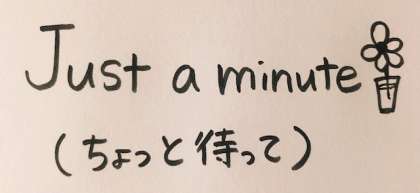 Just a minute
(ちょっと待って)